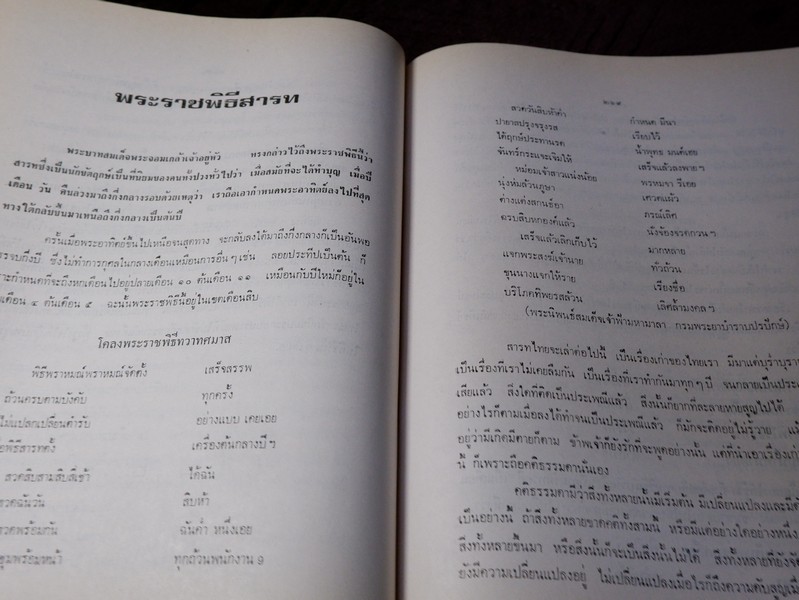 พระราชพิธีสารท
พระบาทสมเด็จพระจอมเกล้าเจ้าอยู่หัว ทรงกล่าวไว้ถึงพระราชพิธีนี้ว่า
สารทซึ่งเป็นนักขัตฤกษ์เป็นที่นิยมของคนทั้งปวงทั่วไปว่า เมื่อสมัยที่จะได้ทำบุญ เมื่อปี
เดือน วัน คืนล่วงมาถึงกึ่งกลางรอบด้วยเหตุว่า เราถือเอากำหนดพระอาทิตย์ลงไปที่สุด
ทางใต้กลับขึ้นมาเหนือถึงกึ่งกลางเป็นต้นปี
ครั้นเมื่อพระอาทิตย์ขึ้นไปเหนือจนสุดทาง จะกลับลงใต้มาถึงกึ่งกลางก็เป็นอันพอ
บรรจบกึ่งปี ซึ่งไม่ทำการกุศลในกลางเดือนเหมือนการอื่นๆเช่น ลอยประทีปเป็นต้น ก็
กำหนดที่จะถึงหกเดือนไปอยู่ปลายเดือน ๑๐ ต้นเดือน ๑๑ เหมือนกับปีใหม่ก็อยู่ใน
เดือน ๔ ต้นเดือน ๕ ฉะนั้นพระราชพิธีนี้อยู่ในเขตเดือนสิบ
โคลงพระราชพิธีทวาทศมาส
พิธีพราหมณ์พราหมณ์จัดตั้ง เสร็จสรรพ
ถ้วนครบตามบังคับ ทุกครั้ง
ไม่แปลกเปลี่ยนตำรับ อย่างแบบ เคยเอย
พิธีสารทตั้ง เครื่องต้นกลางปีฯ
สวดสิบสามสิบสี่เช้า ได้ฉัน
สวดฉันวัน สิบห้า
สวดพร้อมกัน ฉันค่ำ หนึ่งเอย
พร้อมหน้า ทุกถ้วนพนักงาน ๆ
๒๖๕
สวดวันสิบห้าค่ำ กำหนด มีนา
ปายาสปรุงจรุงรส เรียบไว้
ได้ฤกษ์ประทานรด น้ำพุทธ มนต์เอย
จันทร์กระแจะเจิมให้ เสร็จแล้วลงพายฯ
หม่อมเจ้าสาวแน่งน้อย พรหมจา รีเอย
นุ่งห่มล้วนภูษา เศวตแม้ว
ต่างแต่งสกนธ์อา ภรณ์เลิศ
ครบสิบหกองค์แล้ว นั่งจ้องจวดกวนฯ
เสร็จแล้วเลิกเก็บไว้ มากหลาย
แจกพระสงฆ์เจ้านาย ทั่วถ้วน
ขุนนางแจกให้ราย เรียงชื่อ
บริโภคทิพยรสล้วน เลิศล้ำมงคลฯ
(พระนิพนธ์สมเด็จเจ้าฟ้ามหามาลา กรมพระยาบำราบปรปักษ์)
สารทไทยจะเล่าต่อไปนี้ เป็นเรื่องเก่าของไทยเรา มีมาแต่บุร่ำบุรา
เป็นเรื่องที่เราไม่เคยลืมกัน เป็นเรื่องที่เราทำกันมาทุกๆปี จนกลายเป็นประเ
เสียแล้ว สิ่งใดที่คิดเป็นประเพณีแล้ว สิ่งนั้นก็ยากที่จะลายหายสูญไปได้
อย่างไรก็ตามเมื่อลงได้ทำจนเป็นประเพณีแล้ว ก็มักจะติดอยู่ไม่รู้วาย แม้
อยู่ว่ามีเกิดมีตายก็ตาม ข้าพเจ้าก็ยังรักที่จะพูดอย่างนั้น แต่ที่นำเอาเรื่องเก่า
นี้ ก็เพราะถือคติธรรมดานั่นเอง
คติธรรมดามีว่าสิ่งทั้งหลายนั้นมีเริ่มต้น มีเปลี่ยนแปลงและมีดั
เป็นอย่างนี้ ถ้าสิ่งทั้งหลายขาดคติทั้งสามนี้ หรือมีแต่อย่างใดอย่างหนึ่ง
สิ่งทั้งหลายขึ้นมา หรือสิ่งนั้นก็จะเป็นสิ่งนั้นไม่ได้ สิ่งทั้งหลายที่ยังจัด
ยังมีความเปลี่ยนแปลงอยู่ ไม่เปลี่ยนแปลงเมื่อไรก็ถึงความดับสูญเมื่